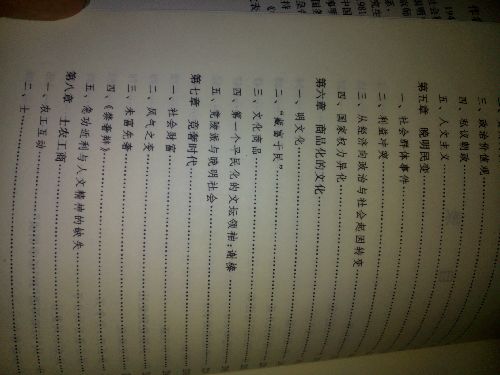 三、政治价值观
四、私议朝政
五、人文主义
第五章 晚明民变
一、社会群体事件
二、利益冲突
三、从经济向政治与社会起因转变
四、国家权力异化
第六章 商品化的文化
一、明文化
二、“藏富于民”
三、文化商品
四、第一个平民化的文坛领袖：谢榛
五、竟陵派与晚明社会
第七章 竞奢时代
一、社会财富
二、风气之变
三、未富先奢
四、《崇奢辨》
五、急功近利与人文精神的缺失
第八章 士农工商
一、农工互动
二、士